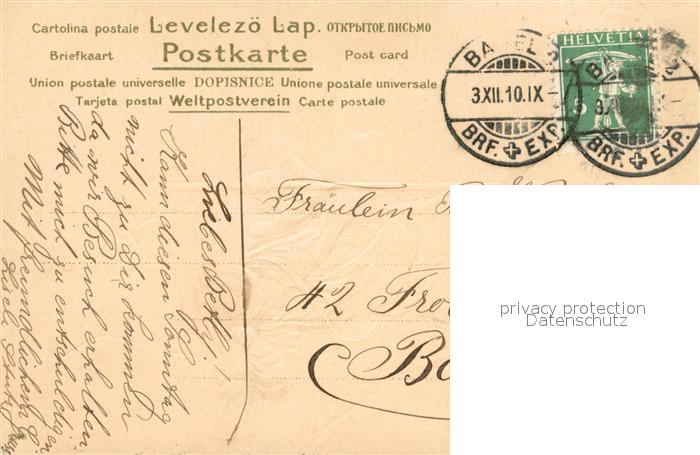 Cartolina postale Levelező Lap. ОТКРЫТОЕ ПИСЬМО
Briefkaart Postkarte Post card
Union postale universelle DOPISNICE Unione postale universale
Tarjeta postal Weltpostverein Carte postale
HELVETIA
BASEL 3
3.XII.10.IX-
BRF. EXP.
BRF. EXP.
Liebes Betty!
Kann diesen Sonntag
nicht zu Dir kommen
da wir Besuch erhalten.
Bitte mich zu entschuldigen
Mit freundlichem
Fräulein
42
privacy protection
Datenschutz